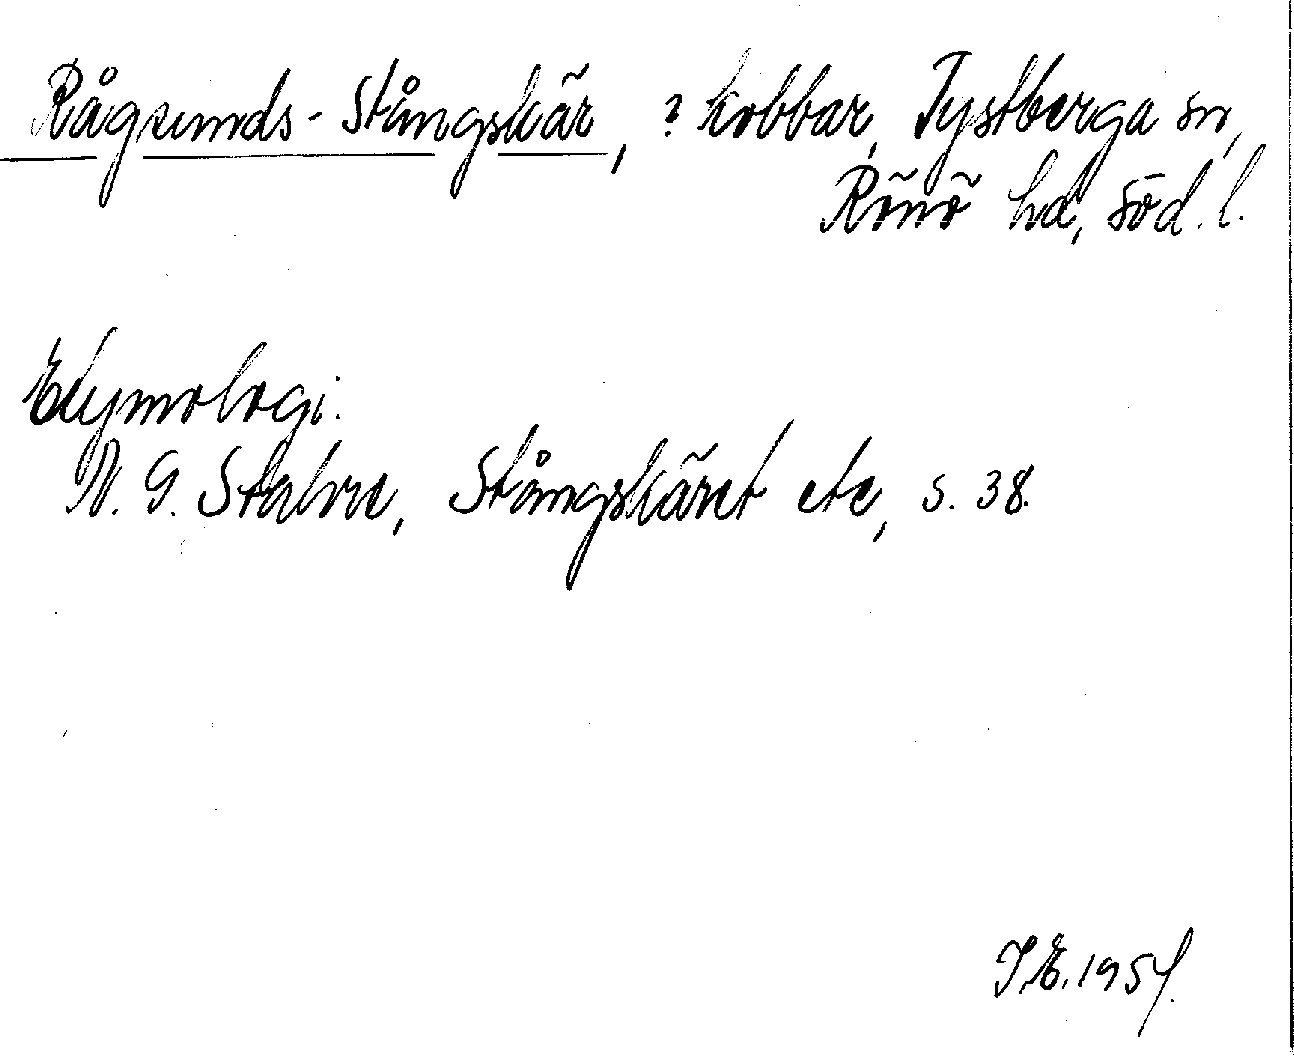 Rågsunds-Stångskär, ? kobbar, Tystberga sn,
Rönö hd, Söd. l.
Etymologi.
N. G. Stahre, Stångskäret etc, s. 38.
I.E. 1954.